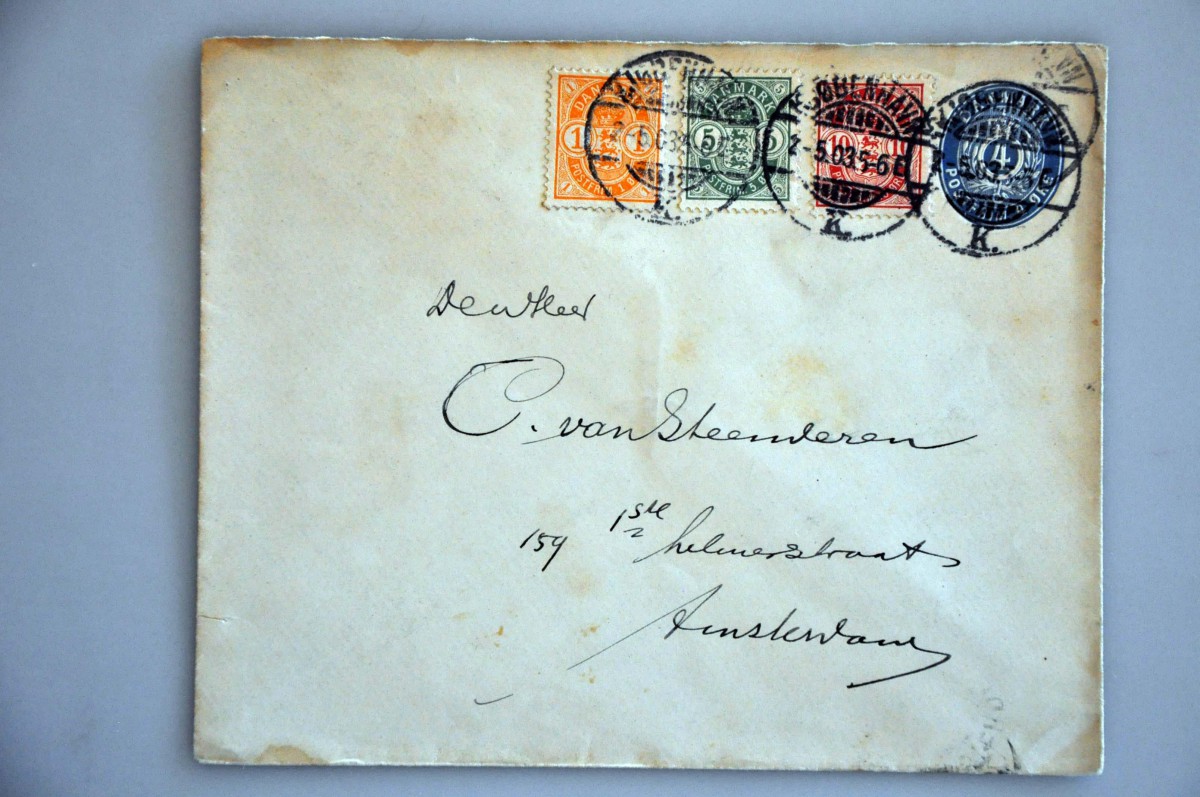 DANMARK
1 1
POSTFRIM 1 Ø
DANMARK
5 5
POSTFRIM 5
10 10
4
KJØBENHAVN
2-5.03 5-6E
K.
Den Heer
C. van Steenderen
159 1ste helmerstraat
Amsterdam